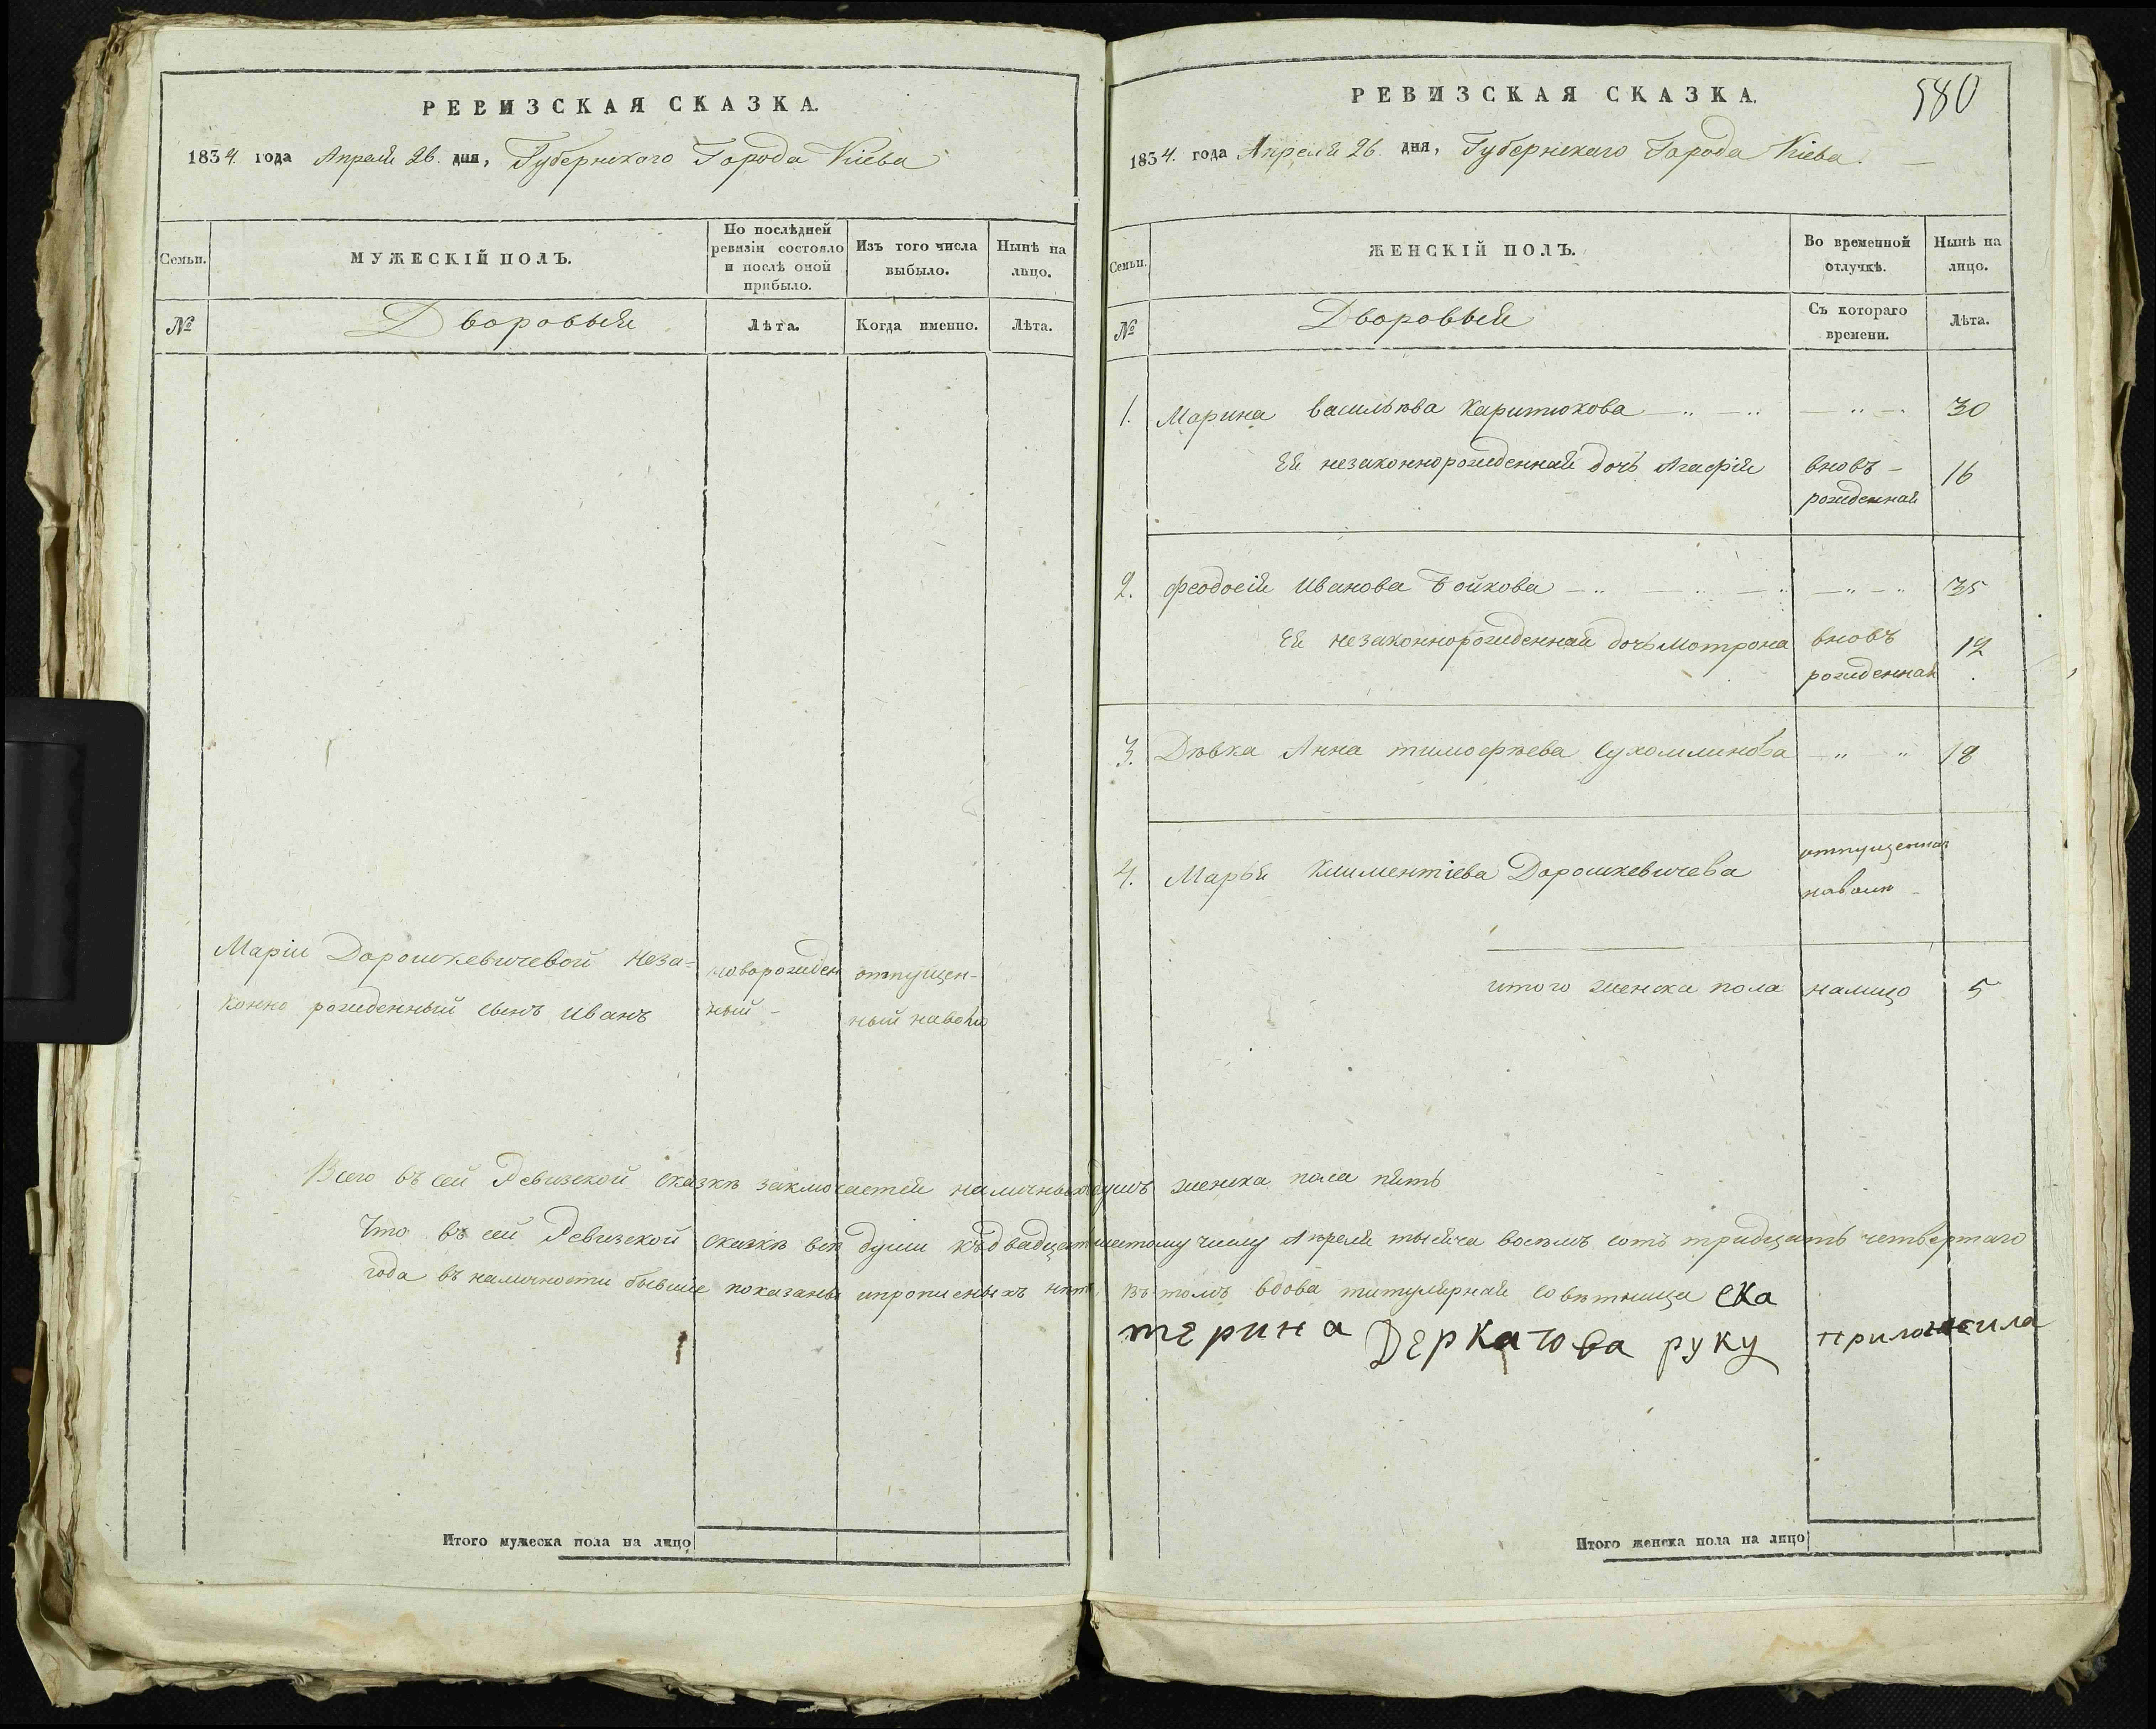 РЕВИЗСКАЯ СКАЗКА.
1834. года Апреля 26. дня, Губернского Города Кіева
Семьи.
МУЖЕСКІЙ ПОЛЪ.
По послѣдней ревизіи состояло и послѣ оной прибыло.
Изъ того числа выбыло.
Нынѣ на лицо.
№
Дворовыя
Лѣта.
Когда именно.
Лѣта.
Маріи Дорошкевичевой неза=
конно рожденный сынъ Иванъ
новорожден
ный -
отпущен-
ный наволю
Итого мужеска пола на лицо
РЕВИЗСКАЯ СКАЗКА.
580
1834. года Апреля 26. дня, Губернскаго Города Кіева.
Семьи.
ЖЕНСКІЙ ПОЛЪ.
Во временной отлучкѣ.
Нынѣ на лицо.
№
Дворовыя
Съ котораго времени.
Лѣта.
1. Марина васильѣва Харитюкова — „ — „ — „ — 30
Ея незаконнорожденная дочь Агафія вновъ - рожденная 16
2. Феодосія Иванова Бойкова — „ — „ — „ — „ — „ 35
Ея незаконнорожденная дочь Мотрона вновъ рожденная 12
3. Дѣвка Анна тимофѣева Сухомлинова — „ „ 18
4. Марья Климентіева Дорошкевичева отпущенная наволю -
итого женска пола налицо 5
Всего въ сей Ревизской сказкѣ заключается наличныхъ душъ женска пола пять
Что въ сей Ревизской сказкѣ всѣ души къ двадцатьшестому числу Апреля тысяча восѣмъ сотъ тридцать четвертаго
года въ наличности бывшие показаны ипрописныхъ нѣтъ, въ томъ вдова титулярная совѣтница ека
терина Деркачова руку приложила
Итого женска пола на лицо